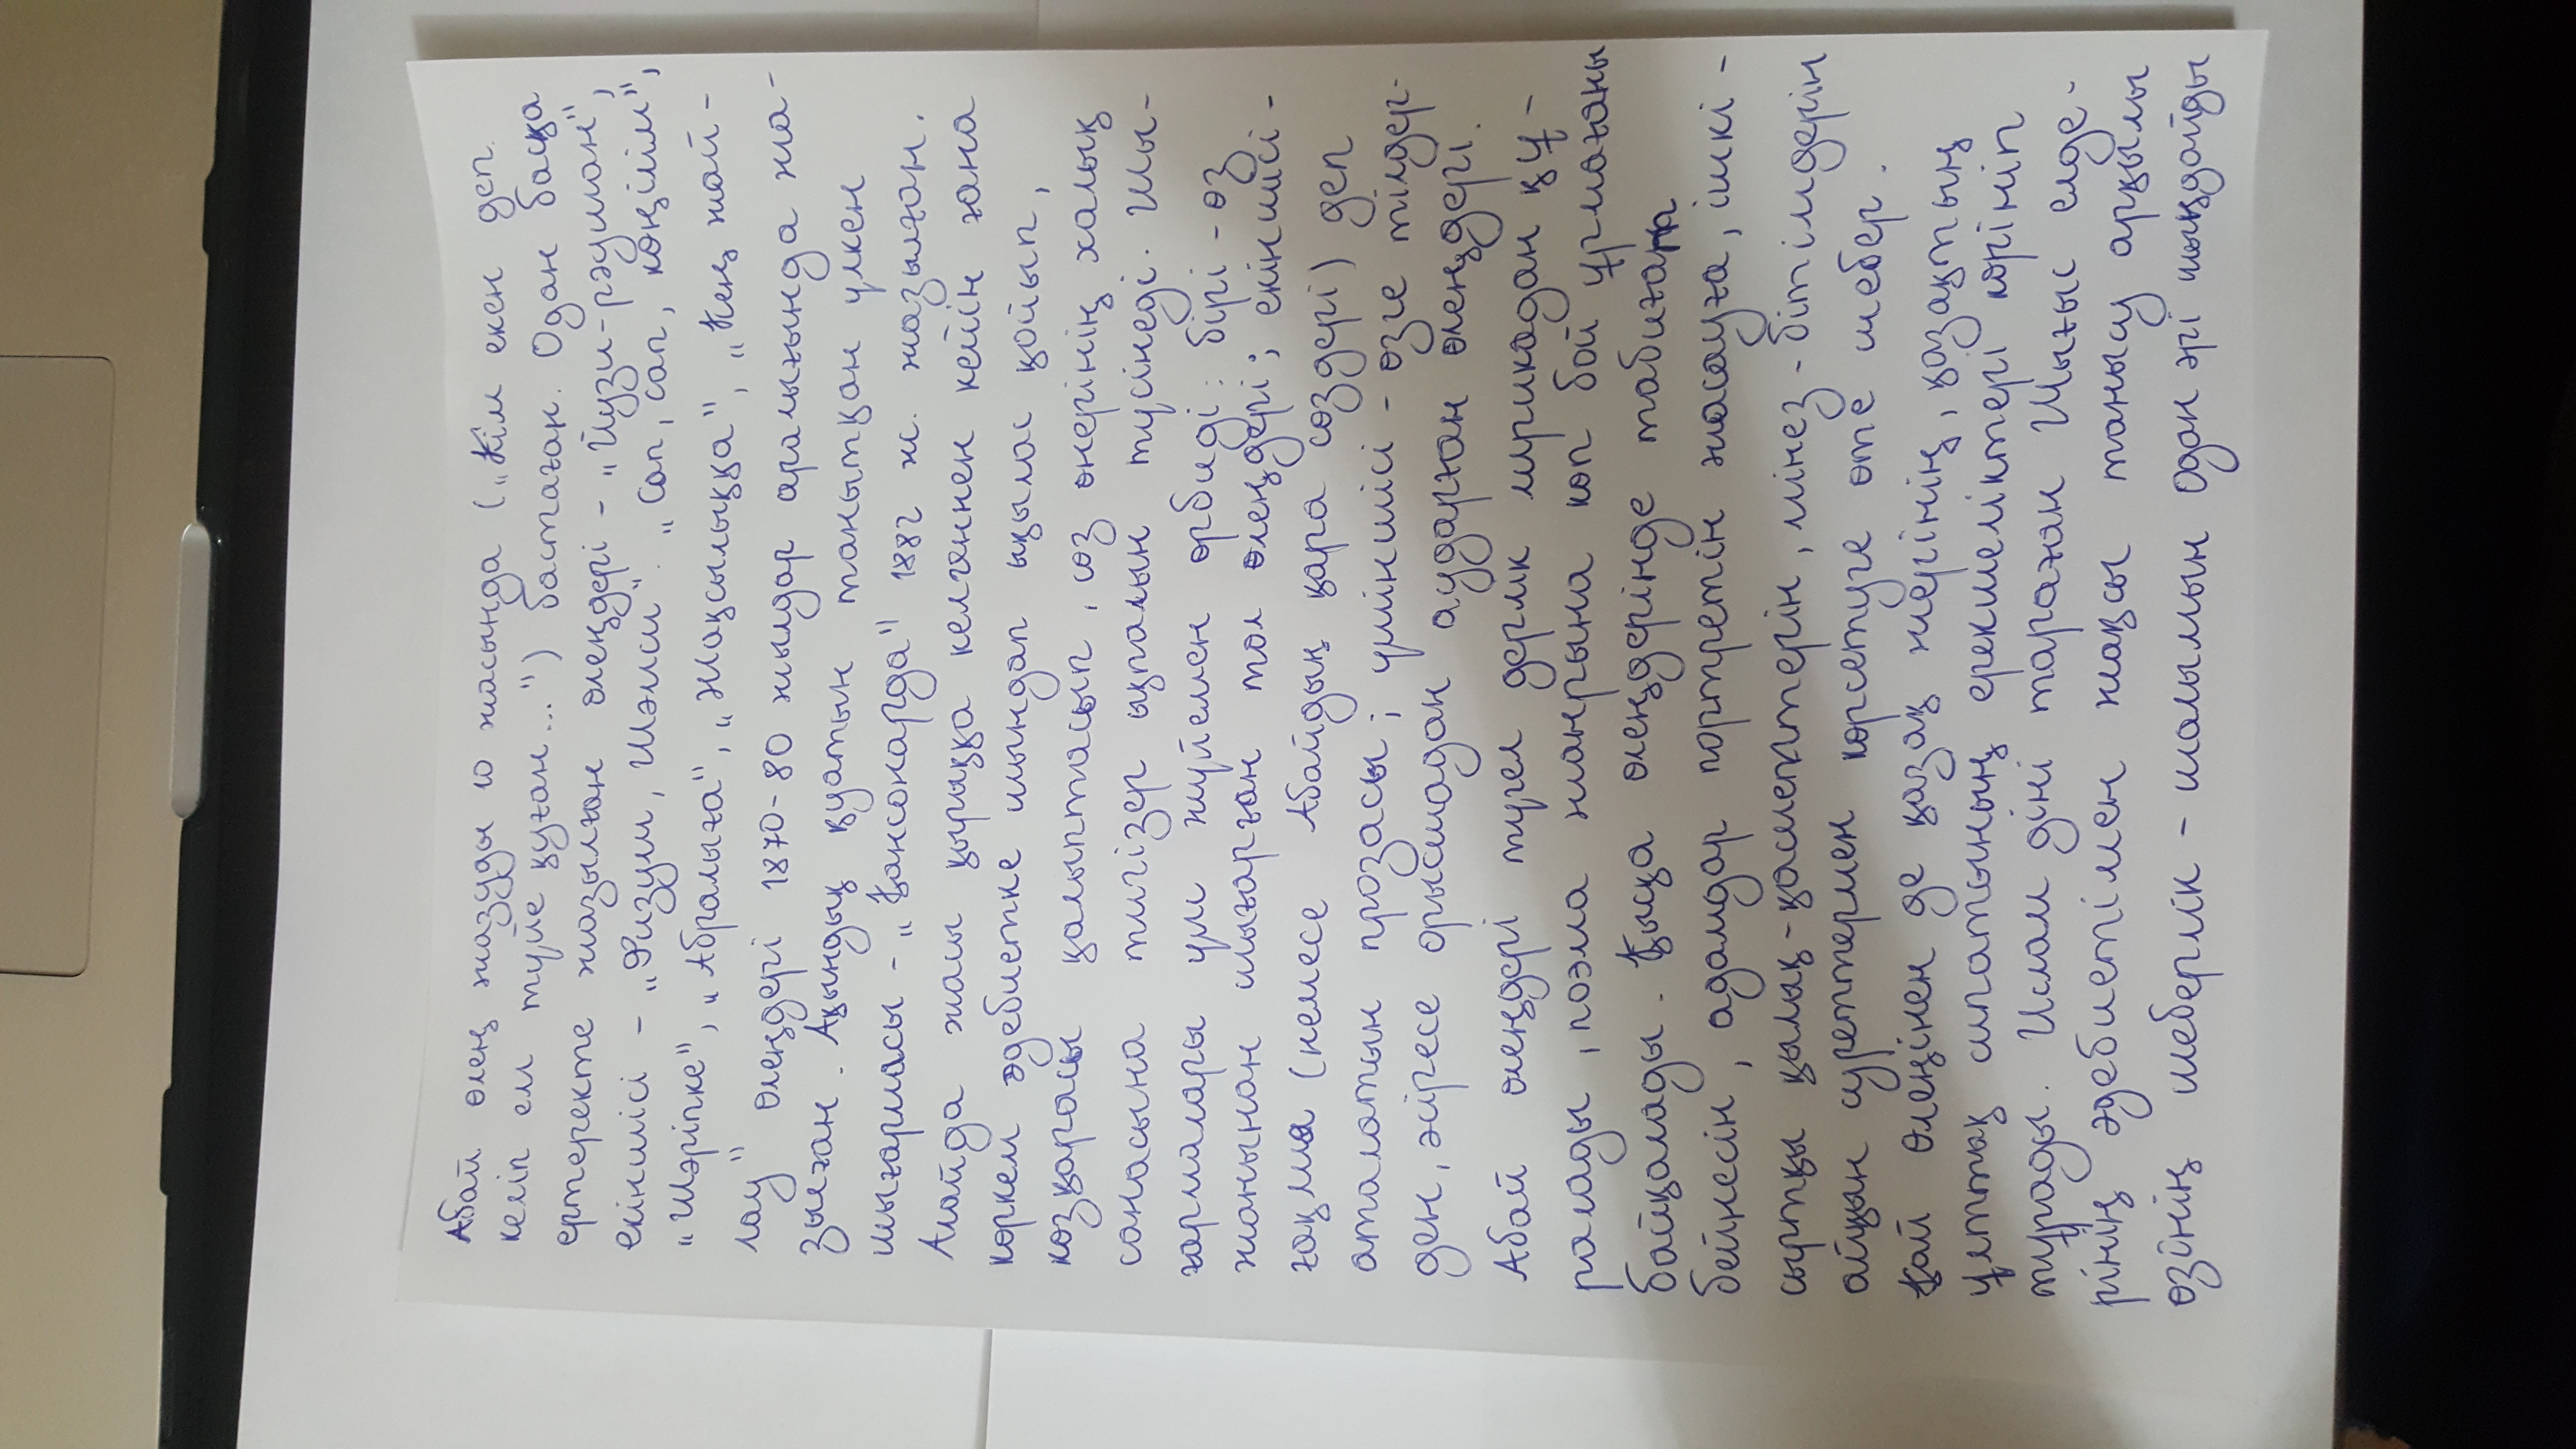 Абай өлең жазуды 10 жасында („Кім екен деп
келіп ем түйе қуған...") бастаған. Одан басқа
ертеректе жазылған өлеңдері – „Йузи-рәушан",
екіншісі – „Физули, Шәмси". „Сап, сап, көңілім",
„Шәріпке", „Абралыға", „Жақсылыққа", „Кең жай-
лау" өлеңдері 1870-80 жылдар аралығында жа-
зылған. Ақындық қуатын танытқан үлкен
шығармасы – „Қансонарда" 1882 ж. жазылған.
Алайда жасы қырыққа келгеннен кейін ғана
көркем әдебиетке шындап ықылас қойып,
көзқарасы қалыптасып, сөз өнерінің халық
санасына тигізер ықпалын түсінеді. Шы-
ғармалары үш жүйемен өрбиді: бірі – өз
жанынан шығарған төл өлеңдері; екіншісі –
ғақлия (немесе Абайдың қара сөздері) деп
аталатын прозасы; үшіншісі – өзге тілдер-
ден, әсіресе орысшадан аударған өлеңдері.
Абай өлеңдері түгел дерлік лирикадан құ-
ралады, поэма жанрына көп бой ұрмағаны
байқалады. Қысқа өлеңдерінде табиғат
бейнесін, адамдар портретін жасауға, ішкі-
сыртқы қылық-қасиеттерін, мінез-бітімдерін
айқын суреттермен көрсетуге өте шебер.
Қай өлеңінен де қазақ жерінің, қазақтың
ұлттық сипатының ерекшеліктері көрініп
тұрады. Ислам діні тараған Шығыс елде-
рінің әдебиетімен жақсы танысу арқылы
өзінің шеберлік-шалымын одан әрі шыңдайды